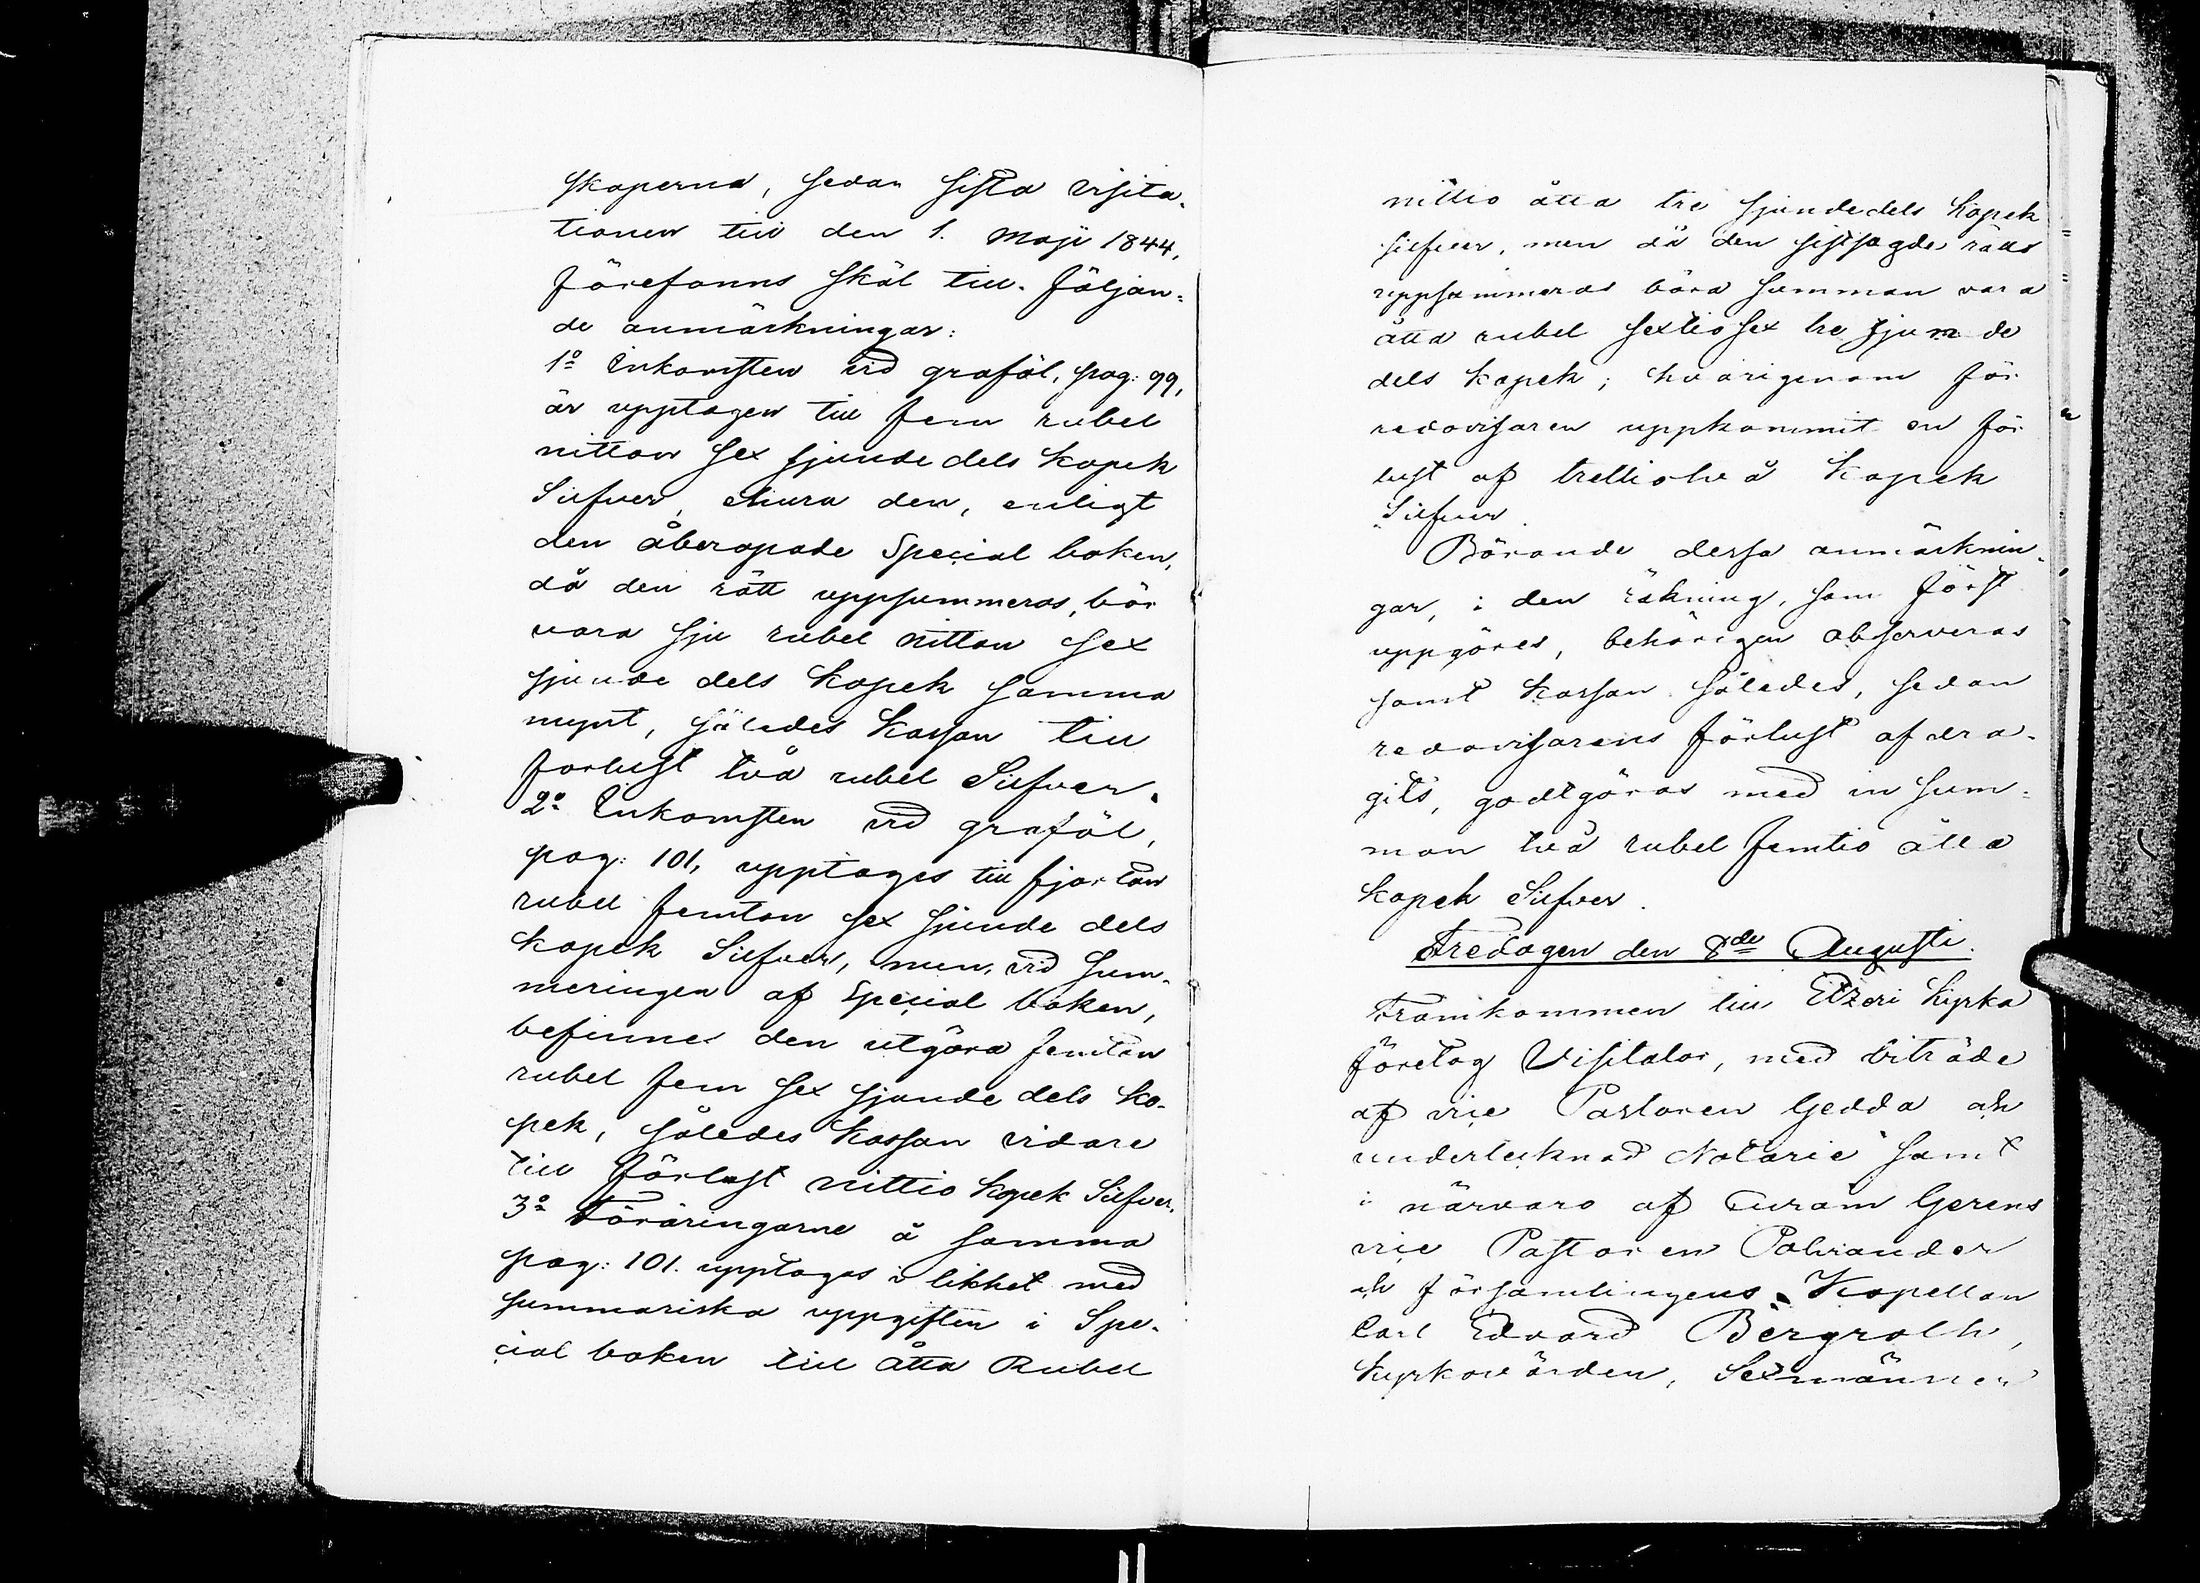 skaperna, sedan sista visita-
tionen till den 1. Maji 1844,
förefanns skäl till följan-
de anmärkningar:
1o Inkomsten vid grafäl, pag: 99,
är upptagen till fem rubel
nitton sex sjunde dels kopek
Silfver, ehuru den, enligt
den åberopade Special boken,
då den rätt uppsummeras, bör
vara sju rubel nitton sex
sjunde dels kopek samma
mynt, således kassan till
förlust två rubel Silfver.
2o Inkomsten vid graföl,
pag: 101, upptages till fjorton
rubel femton sex sjunde dels
kopek Silfver, men, vid sum-
meringen af Special boken,
befinnes den utgöra femton
rubel fem sex sjunde dels ko-
pek, således kassan vidare
till förlust nittio kopek Silfver.
3o Föräringarne å samma
pag: 101. upptages i likhet med
summariska uppgiften i Spe-
cial boken till åtta Rubel
nittio åtta tre sjundedels kopek
silfver, men då den sistsagde rätt
uppsummeras böra summan vara
åtta rubel sextiosex tre sjunde
dels kopek; hvarigenom för
redovisaren uppkommit en för-
lust af trettiotvå kopek
Silfver.
Börande dessa anmärknin-
gar, i den räkning, som först
uppgöres, behörigen observeras
samt kassan således, sedan
redovisarens förlust afdra-
gits, godtgöras med en sum-
man två rubel femtio åtta
kopek Silfver.
Fredagen den 8de Augusti.
Framkommen till Etzeri kyrka
företog Visitator, med biträde
af vice Pastoren Gedda och
undertecknad Notarie samt
i närvaro af Curam Gerens
vice Pastoren Polviander
och församlingens Kapellan
Carl Edvard Bergroth,
kyrkovärden, Sexmännen